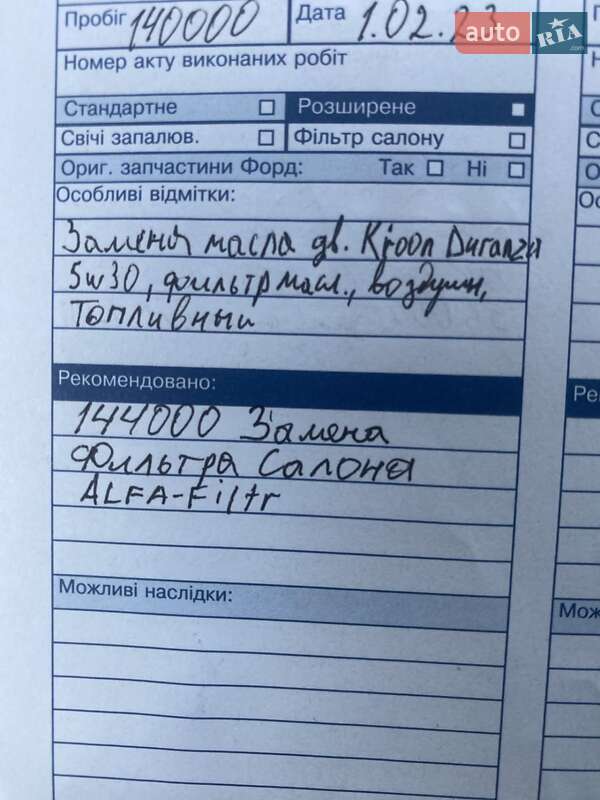 Пробіг 140000 Дата 1.02.23
auto RIA .com
Номер акту виконаних робіт
Стандартне Розширене
Свічі запалюв. Фільтр салону
Ориг. запчастини Форд: Так Ні
Особливі відмітки:
Замена масла дв. Kroon Duranza
5w30, фильтр масл., воздушн,
Топливный
Рекомендовано:
144000 Замена
Фильтра Салона
ALFA-Filtr
Можливі наслідки: